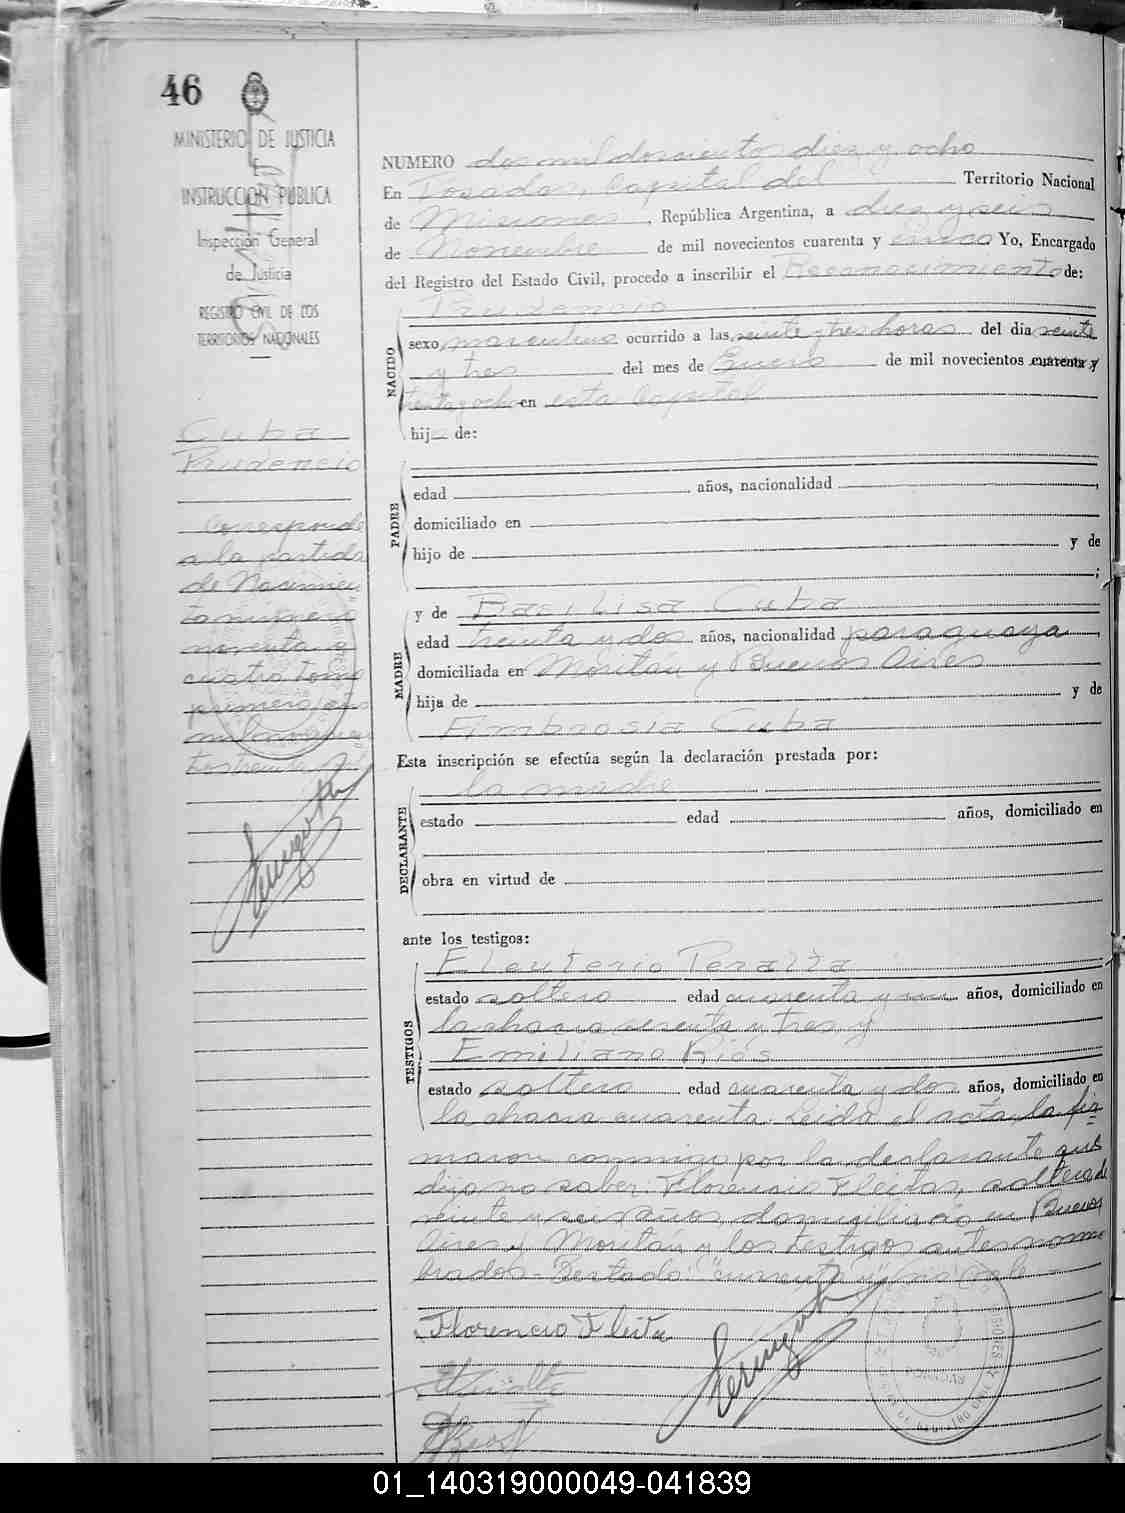 46
MINISTERIO DE JUSTICIA
E
INSTRUCCION PUBLICA
Inspección General
de Justicia
REGISTRO CIVIL DE LOS
TERRITORIOS NACIONALES
Cuba
Prudencio
Corresponde
a la partida
de Nacimien
to numero
noventa y
cuatro Tomo
primero año
mil novecien
tos treinta
NUMERO dos mil doscientos diez y ocho
En Posadas, Capital del Territorio Nacional
de Misiones, República Argentina, a diez y seis
de Noviembre de mil novecientos cuarenta y cinco Yo, Encargado
del Registro del Estado Civil, procedo a inscribir el Reconocimiento de:
NACIDO
Prudencio
sexo masculino ocurrido a las veinte y tres horas del dia veinte
y tres del mes de Enero de mil novecientos cuarenta y
treinta y ocho en esta Capital
hij de:
PADRE
edad años, nacionalidad ,
domiciliado en
hijo de y de
;
MADRE
y de Basilisa Cuba
edad treinta y dos años, nacionalidad paraguaya,
domiciliada en Moritán y Buenos Aires
hija de y de
Fimbrosia Cuba
Esta inscripción se efectúa según la declaración prestada por:
DECLARANTE
la madre
estado edad años, domiciliado en
obra en virtud de
ante los testigos:
TESTIGOS
Eleuterio Peralta
estado soltero edad cuarenta y un años, domiciliado en
la chacra sesenta y tres y
Emiliano Ríos
estado soltero edad cuarenta y dos años, domiciliado en
la chacra cuarenta. Leida el acta, la fir
maron conmigo por la declarante que
dijo no saber: Florencio Fleitas, soltero de
veinte y seis años, domiciliado en Buenos
Aires y Moritán y los testigos antes nom
brados. Testado: "cuarenta y" no vale
Florencio Fleita
01_140319000049-041839